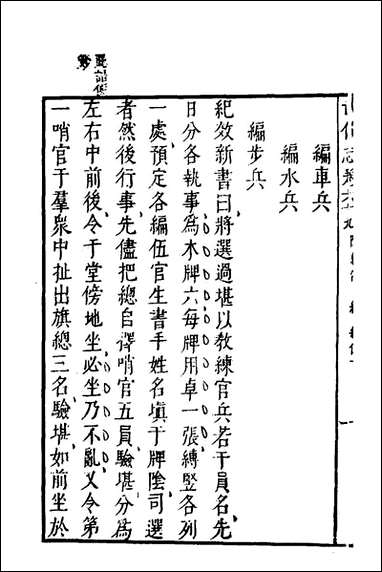 編車兵
編水兵
編步兵
紀效新書曰將選過堪以教練官兵若干員名先
日分各執事爲木牌六每牌用卓一張縛竪各列
一處預定各編伍官生書手姓名塡于牌陰司選
者然後行事先儘把總自擇哨官五員驗堪分爲
左右中前後令于堂傍地坐必坐乃不亂又令第
一哨官于羣衆中扯出旗總三名驗堪如前坐於